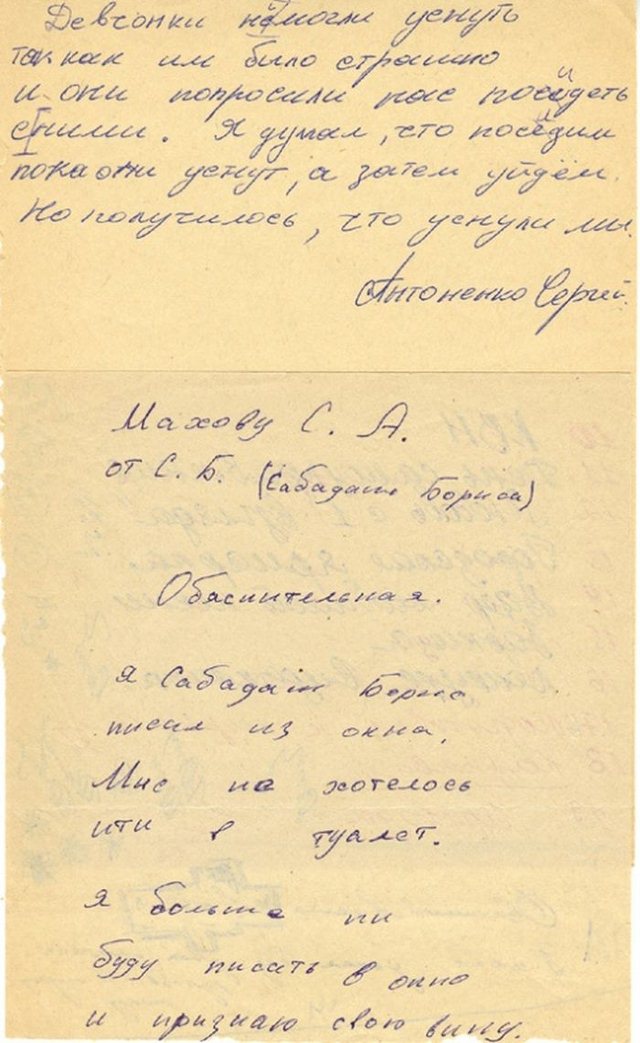 Девчонки не могли уснуть
так как им было страшно
и они попросили нас посидеть
с ними. Я думал, что посидим
пока они уснут, а затем уйдём.
Но получилось, что уснули мы.
Антоненко Сергей
Махову С. А.
от С. Б. (Сабадаш Бориса)
Обяснительная.
я Сабадаш Борис
писал из окна,
Мне не хотелось
ити в туалет.
я больше ни
буду писать в окно
и признаю свою вину.